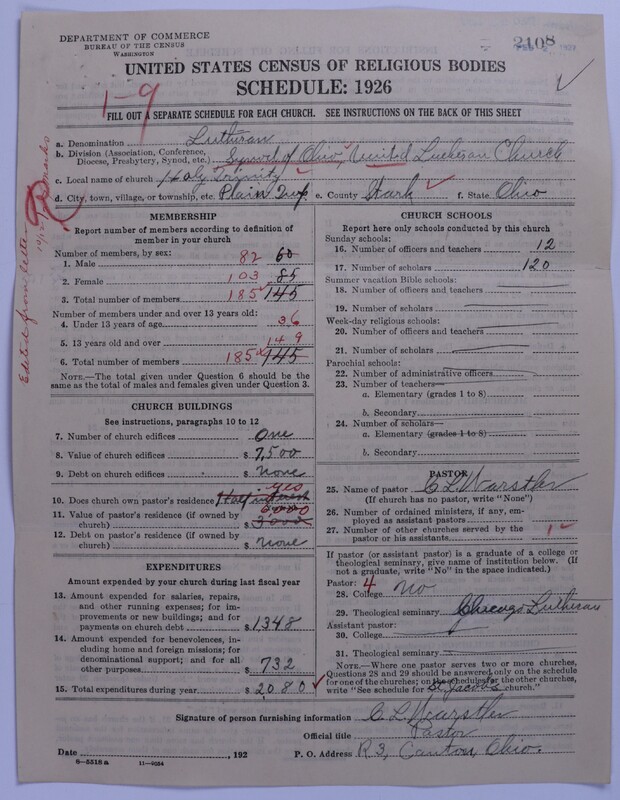 DEPARTMENT OF COMMERCE
BUREAU OF THE CENSUS
WASHINGTON
2408
UNITED STATES CENSUS OF RELIGIOUS BODIES
SCHEDULE: 1926
1-9
FILL OUT A SEPARATE SCHEDULE FOR EACH CHURCH. SEE INSTRUCTIONS ON THE BACK OF THIS SHEET
a. Denomination Lutheran
b. Division (Association, Conference, Diocese, Presbytery, Synod, etc.) Synod of Ohio, United Lutheran Church
c. Local name of church Holy Trinity
d. City, town, village, or township, etc. Plain Twp. e. County Stark f. State Ohio
Edited from letter
MEMBERSHIP
Report number of members according to definition of
member in your church
Number of members, by sex:
1. Male 82 60
2. Female 103 85
3. Total number of members 185 145
Number of members under and over 13 years old:
4. Under 13 years of age 36
5. 13 years old and over 149
6. Total number of members 185 145
NOTE.—The total given under Question 6 should be
the same as the total of males and females given under Question 3.
CHURCH BUILDINGS
See instructions, paragraphs 10 to 12
7. Number of church edifices One
8. Value of church edifices $ 7,500
9. Debt on church edifices $ None
10. Does church own pastor's residence Half interest yes
11. Value of pastor's residence (if owned by
church) $ 3000 6,000
12. Debt on pastor's residence (if owned by
church) $ None
EXPENDITURES
Amount expended by your church during last fiscal year
13. Amount expended for salaries, repairs,
and other running expenses; for im-
provements or new buildings; and for
payments on church debt $ 1348
14. Amount expended for benevolences, in-
cluding home and foreign missions; for
denominational support; and for all
other purposes $ 732
15. Total expenditures during year $ 2080
CHURCH SCHOOLS
Report here only schools conducted by this church
Sunday schools:
16. Number of officers and teachers 12
17. Number of scholars 120
Summer vacation Bible schools:
18. Number of officers and teachers
19. Number of scholars
Week-day religious schools:
20. Number of officers and teachers
21. Number of scholars
Parochial schools:
22. Number of administrative officers
23. Number of teachers—
a. Elementary (grades 1 to 8)
b. Secondary
24. Number of scholars—
a. Elementary (grades 1 to 8)
b. Secondary
PASTOR
25. Name of pastor C L Warstler
(If church has no pastor, write "None")
26. Number of ordained ministers, if any, em-
ployed as assistant pastors
27. Number of other churches served by the
pastor or his assistants 1
If pastor (or assistant pastor) is a graduate of a college or
theological seminary, give name of institution below. (If
not a graduate, write "No" in the space indicated.)
Pastor: 4
28. College no
29. Theological seminary Chicago Lutheran
Assistant pastor:
30. College
31. Theological seminary
NOTE.—Where one pastor serves two or more churches,
Questions 28 and 29 should be answered only on the schedule
for one of the churches; on the schedules for the other churches,
write "See schedule for St Jacobs church."
Signature of person furnishing information C L Warstler
Official title Pastor
Date , 192 P. O. Address R 3, Canton, Ohio.
6-5518a 11-9054